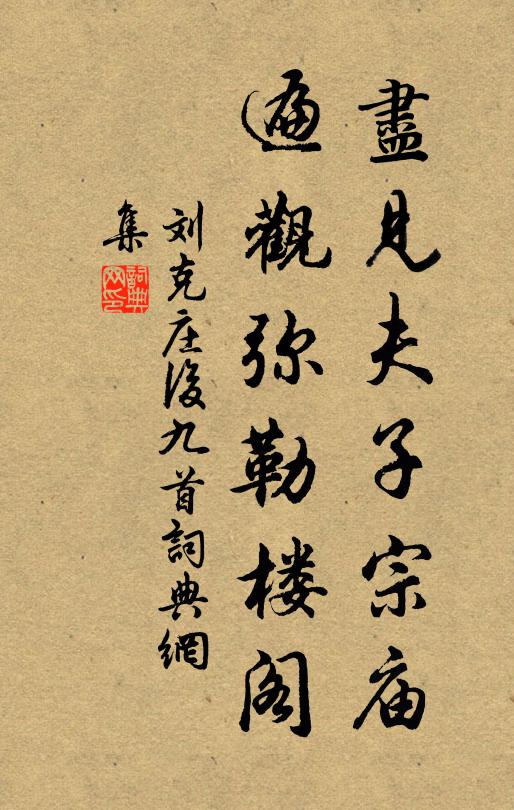 盡見夫子宗庙
遍觀弥勒楼阁
刘克庄後九首詞典網
集
詞典
网印